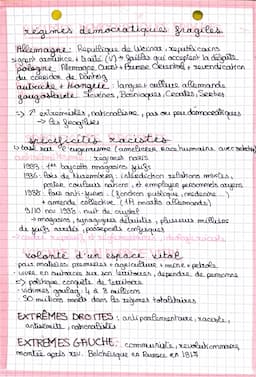 régimes démocratiques fragiles
Allemagne : République de Weimar, républicains
signent armistice + traité (V) → faibles qui acceptent la défaite
Pologne : Allemagne Ouest + Prusse Orientale → revendication
du corridor de Dantzig
autriche + Hongrie : langue + culture allemande
yougoslavie : Slovènes, Bosniaques, Croates, Serbes
=> extrémistes, nationalisme, pas ou peu démocratiques
→ les fragilise
spécificités racistes
basé sur l'eugénisme (améliorer race humaine avec
: régime nazis
1933 : 1er boycott magasins juifs
1935 : lois de Nuremberg : interdiction relations mixtes,
poster couleurs nazies, et employer personnes aryens
1938 : lois anti-juives (fonction publique, médecine...)
+ amende collective (1M marks allemands)
9/10 nov 1938 : nuit de cristal
→ magasins, synagogues détruits, plusieurs milliers
de juifs arrêtés, passeports confisqués
volonté d'un espace vital
pour matières premières + agriculture + mine + pétrole
→ vivre en autarcie sur son territoire, dépendre de personne
=> politique conquête de territoires
- victimes goulag : 4 à 8 millions
- 50 millions morts dans les régimes totalitaires
EXTRÊMES DROITES : antiparlementaire, raciste,
antisémite, nationaliste
EXTRÊMES GAUCHE : communiste, révolutionnaire,
montée après rev. Bolchévique en Russie en 1917